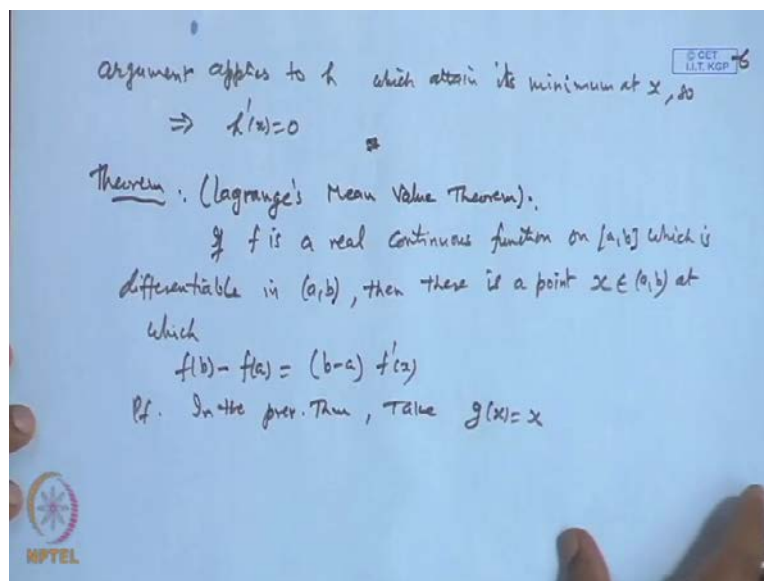 © CET
I.I.T. KGP
-6
argument applies to h which attain its minimum at x, so
⇒ h'(x)=0
Theorem : (Lagrange's Mean Value Theorem).
If f is a real continuous function on [a,b] which is
differentiable in (a,b), then there is a point x ∈ (a,b) at
which
f(b) - f(a) = (b-a) f'(x)
Pf. In the prev. Thm, Take g(x) = x
NPTEL